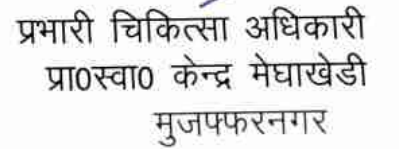 प्रभारी चिकित्सा अधिकारी
प्रा0स्वा0 केन्द्र मेघाखेडी
मुजफ्फरनगर